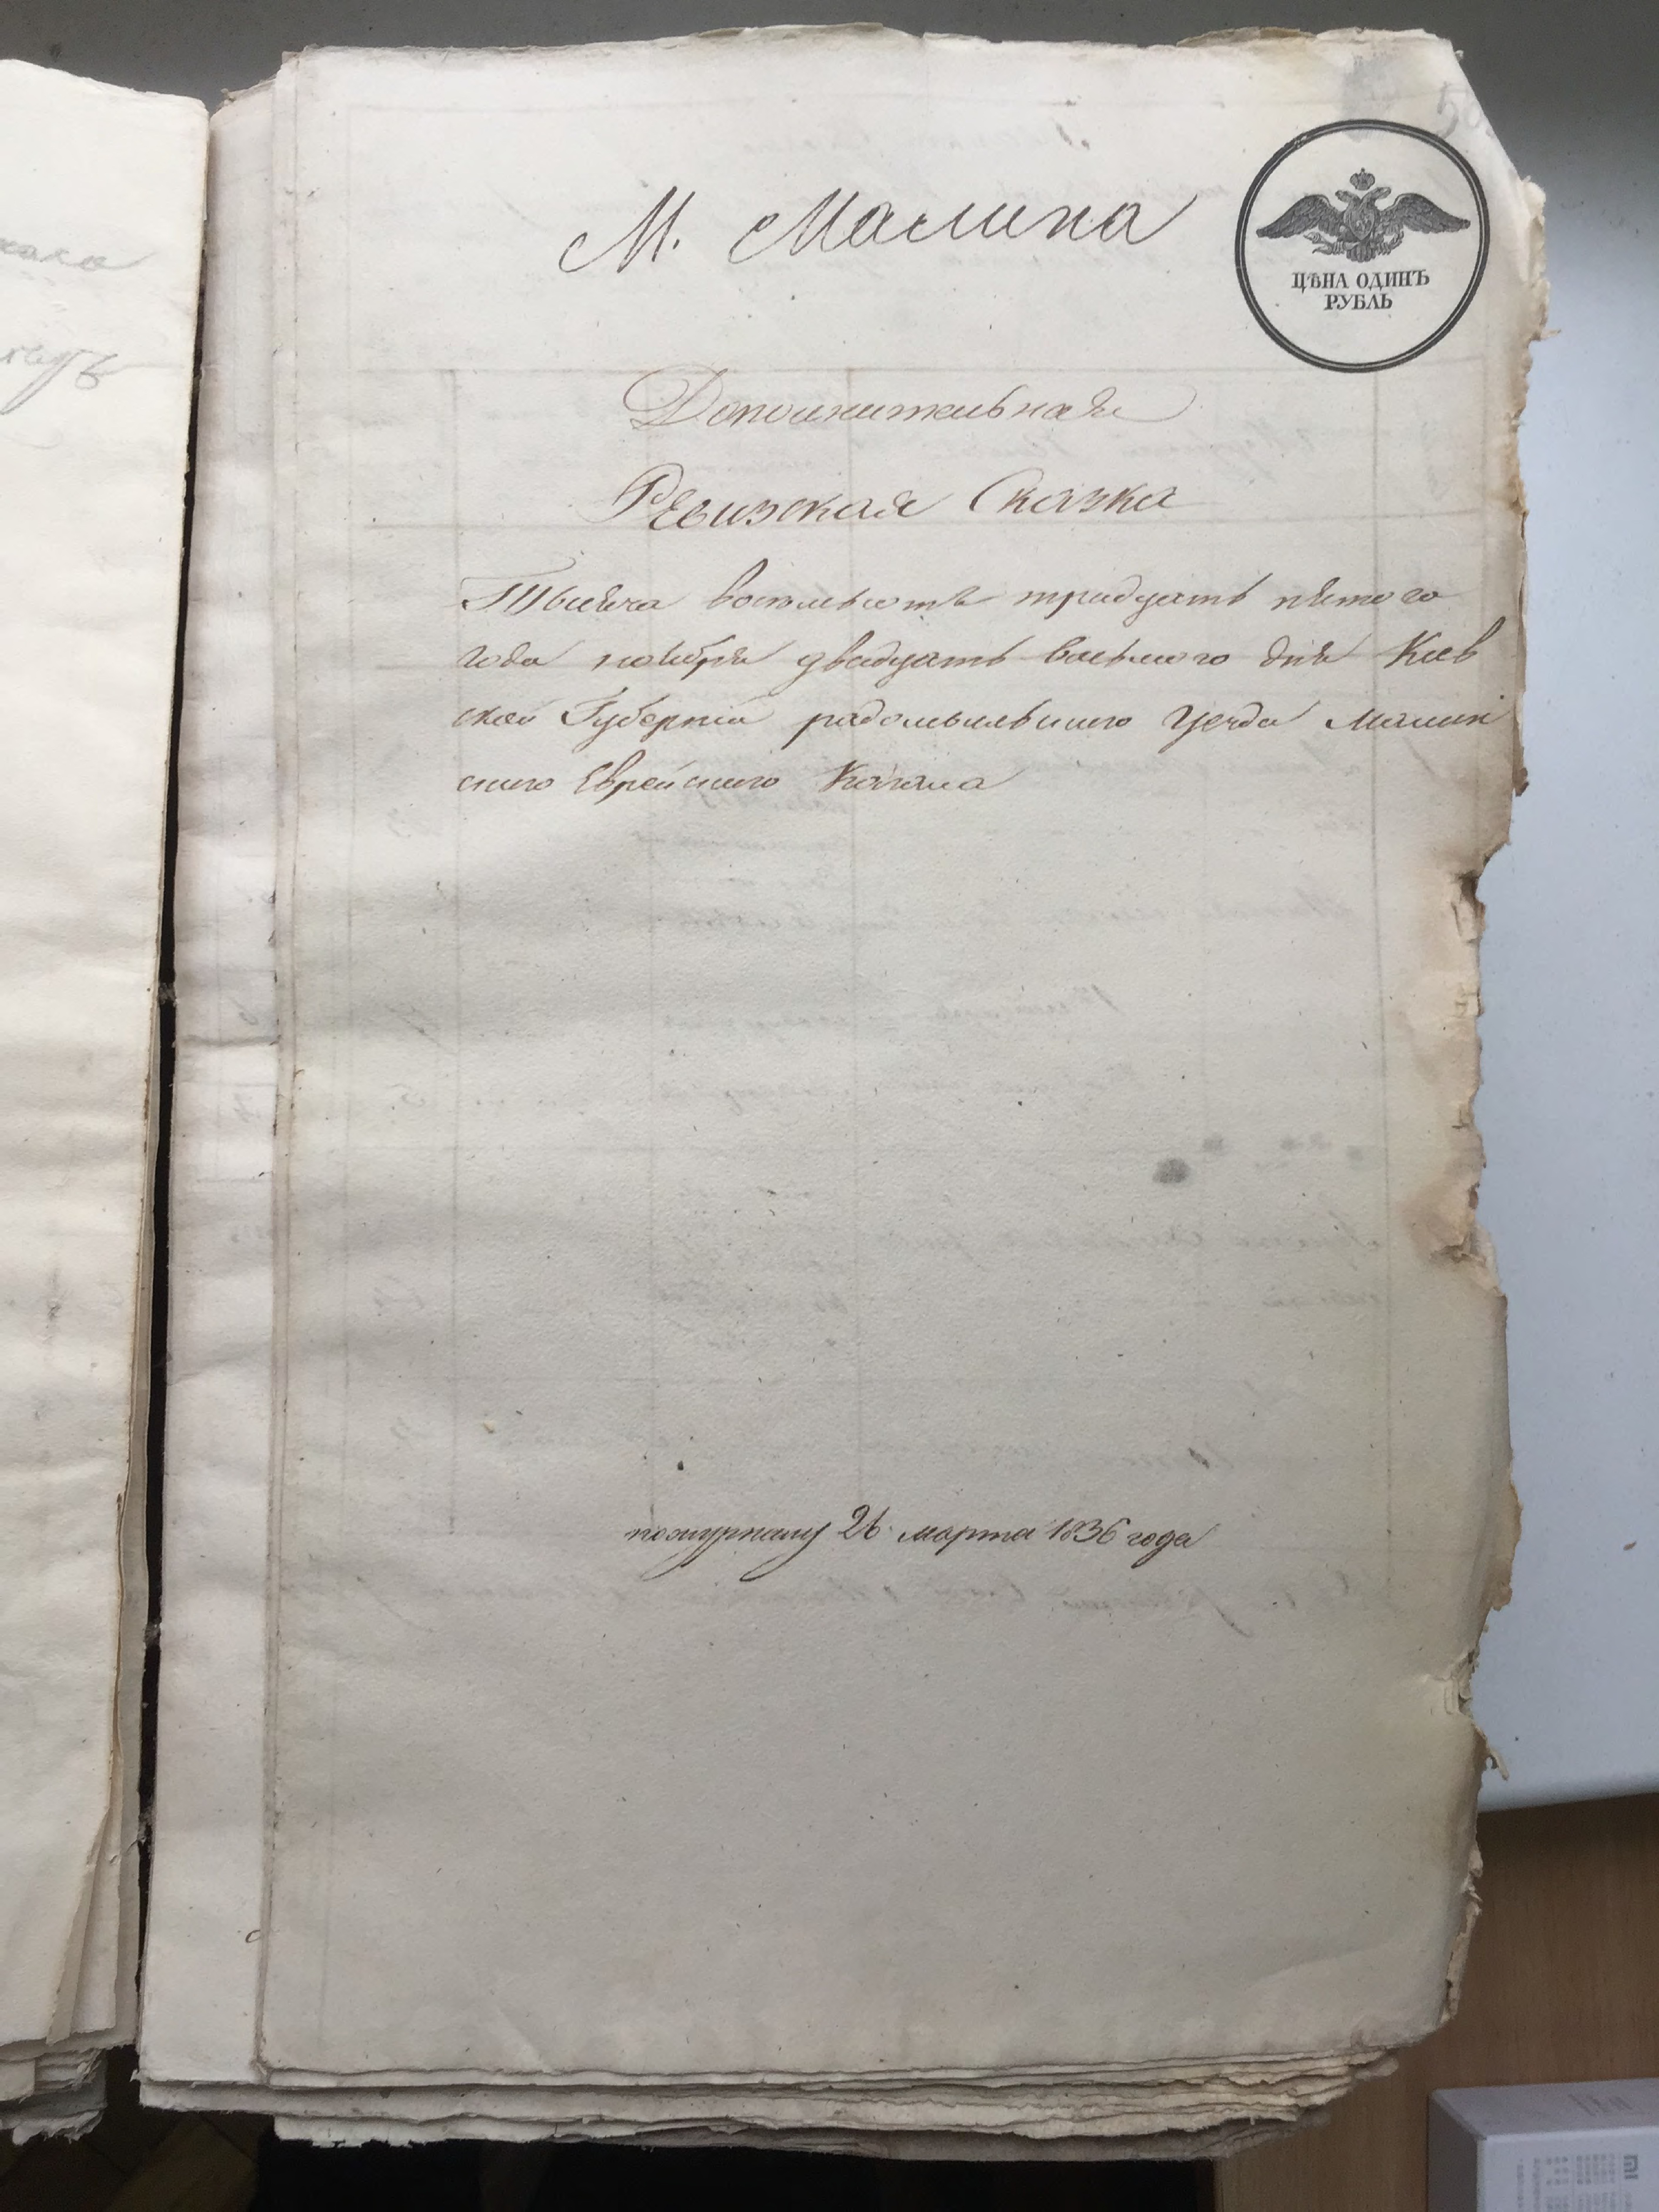 М. Малина
ЦѢНА ОДИНЪ
РУБЛЬ
Дополнительная
Ревизская Сказка
Тысяча восемьсотъ тридцать пятого
года ноября двадцать восьмого дня Киев
ской Губерніи радомысльского уезда Малин
ского Еврейского Кагала
по журналу 26 марта 1836 года